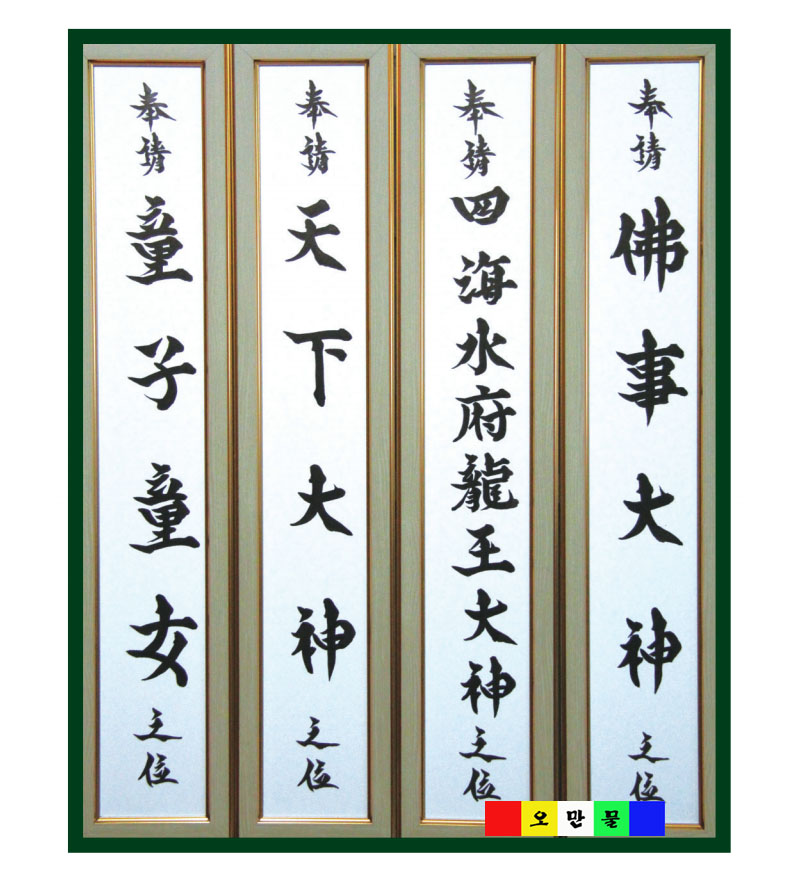 奉請佛事大神之位
奉請四海水府龍王大神之位
奉請天下大神之位
奉請童子童女之位
오만물